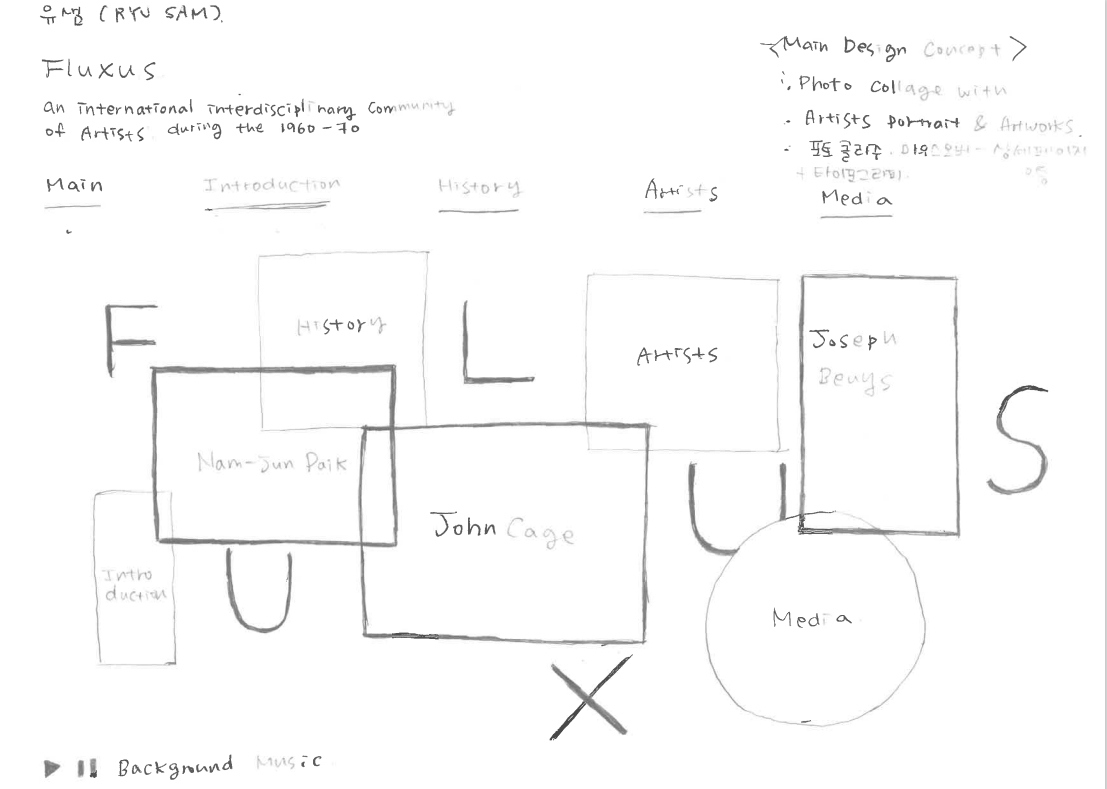 유샘 (RYU SAM).
Fluxus
an international interdisciplinary community
of Artists during the 1960-70
<Main Design Concept>
: Photo collage with
- Artists portrait & Artworks.
- 포토 콜라주. 마우스오버 - 상세페이지
+ 타이포그래피.
이동
Main Introduction History Artists Media
F
History
L
Artists
Joseph
Beuys
S
Nam-Jun Paik
John Cage
U
Intro
duction
U
Media
X
Background Music